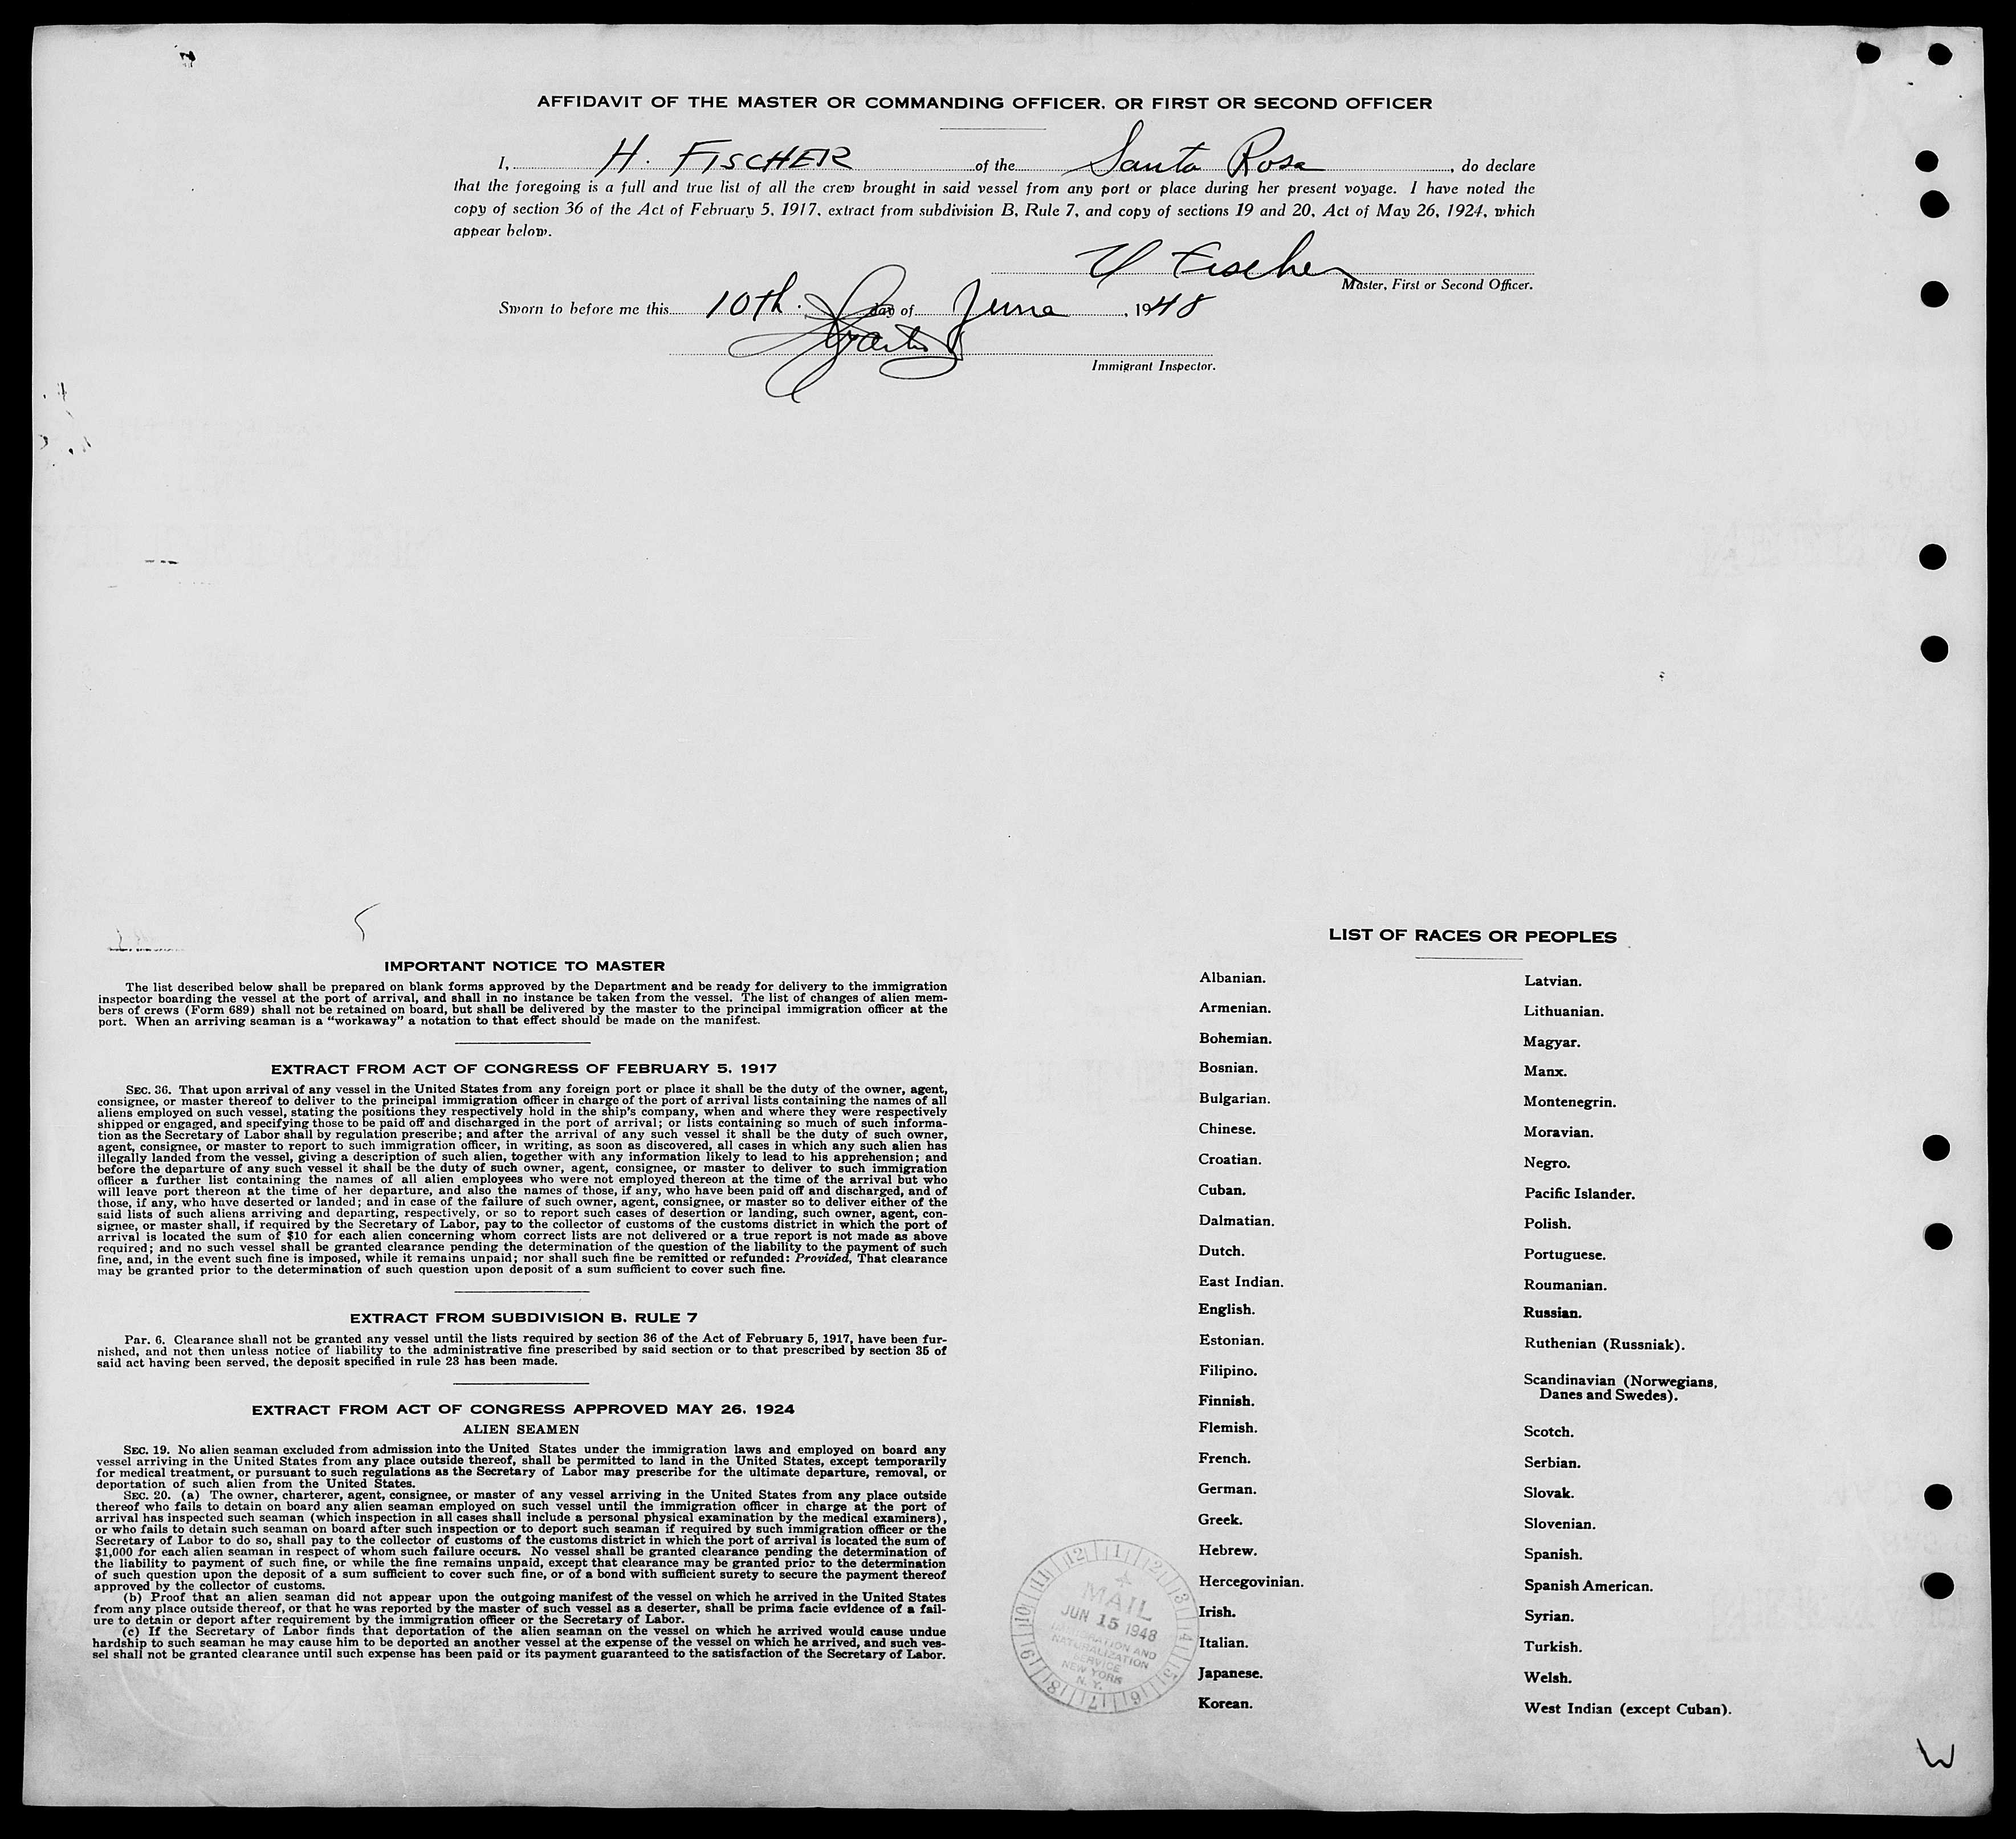 AFFIDAVIT OF THE MASTER OR COMMANDING OFFICER, OR FIRST OR SECOND OFFICER
I, H. FISCHER of the Santa Rosa, do declare
that the foregoing is a full and true list of all the crew brought in said vessel from any port or place during her present voyage. I have noted the
copy of section 36 of the Act of February 5, 1917, extract from subdivision B, Rule 7, and copy of sections 19 and 20, Act of May 26, 1924, which
appear below.
H Fischer
Master, First or Second Officer.
Sworn to before me this 10th. day of June, 1948
Immigrant Inspector.
IMPORTANT NOTICE TO MASTER
The list described below shall be prepared on blank forms approved by the Department and be ready for delivery to the immigration
inspector boarding the vessel at the port of arrival, and shall in no instance be taken from the vessel. The list of changes of alien mem-
bers of crews (Form 689) shall not be retained on board, but shall be delivered by the master to the principal immigration officer at the
port. When an arriving seaman is a “workaway” a notation to that effect should be made on the manifest.
EXTRACT FROM ACT OF CONGRESS OF FEBRUARY 5, 1917
SEC. 36. That upon arrival of any vessel in the United States from any foreign port or place it shall be the duty of the owner, agent,
consignee, or master thereof to deliver to the principal immigration officer in charge of the port of arrival lists containing the names of all
aliens employed on such vessel, stating the positions they respectively hold in the ship's company, when and where they were respectively
shipped or engaged, and specifying those to be paid off and discharged in the port of arrival; or lists containing so much of such informa-
tion as the Secretary of Labor shall by regulation prescribe; and after the arrival of any such vessel it shall be the duty of such owner,
agent, consignee, or master to report to such immigration officer, in writing, as soon as discovered, all cases in which any such alien has
illegally landed from the vessel, giving a description of such alien, together with any information likely to lead to his apprehension; and
before the departure of any such vessel it shall be the duty of such owner, agent, consignee, or master to deliver to such immigration
officer a further list containing the names of all alien employees who were not employed thereon at the time of the arrival but who
will leave port thereon at the time of her departure, and also the names of those, if any, who have been paid off and discharged, and of
those, if any, who have deserted or landed; and in case of the failure of such owner, agent, consignee, or master so to deliver either of the
said lists of such aliens arriving and departing, respectively, or so to report such cases of desertion or landing, such owner, agent, con-
signee, or master shall, if required by the Secretary of Labor, pay to the collector of customs of the customs district in which the port of
arrival is located the sum of $10 for each alien concerning whom correct lists are not delivered or a true report is not made as above
required; and no such vessel shall be granted clearance pending the determination of the question of the liability to the payment of such
fine, and, in the event such fine is imposed, while it remains unpaid; nor shall such fine be remitted or refunded: Provided, That clearance
may be granted prior to the determination of such question upon deposit of a sum sufficient to cover such fine.
EXTRACT FROM SUBDIVISION B, RULE 7
Par. 6. Clearance shall not be granted any vessel until the lists required by section 36 of the Act of February 5, 1917, have been fur-
nished, and not then unless notice of liability to the administrative fine prescribed by said section or to that prescribed by section 35 of
said act having been served, the deposit specified in rule 23 has been made.
EXTRACT FROM ACT OF CONGRESS APPROVED MAY 26, 1924
ALIEN SEAMEN
SEC. 19. No alien seaman excluded from admission into the United States under the immigration laws and employed on board any
vessel arriving in the United States from any place outside thereof, shall be permitted to land in the United States, except temporarily
for medical treatment, or pursuant to such regulations as the Secretary of Labor may prescribe for the ultimate departure, removal, or
deportation of such alien from the United States.
SEC. 20. (a) The owner, charterer, agent, consignee, or master of any vessel arriving in the United States from any place outside
thereof who fails to detain on board any alien seaman employed on such vessel until the immigration officer in charge at the port of
arrival has inspected such seaman (which inspection in all cases shall include a personal physical examination by the medical examiners),
or who fails to detain such seaman on board after such inspection or to deport such seaman if required by such immigration officer or the
Secretary of Labor to do so, shall pay to the collector of customs of the customs district in which the port of arrival is located the sum of
$1,000 for each alien seaman in respect of whom such failure occurs. No vessel shall be granted clearance pending the determination of
the liability to payment of such fine, or while the fine remains unpaid, except that clearance may be granted prior to the determination
of such question upon the deposit of a sum sufficient to cover such fine, or of a bond with sufficient surety to secure the payment thereof
approved by the collector of customs.
(b) Proof that an alien seaman did not appear upon the outgoing manifest of the vessel on which he arrived in the United States
from any place outside thereof, or that he was reported by the master of such vessel as a deserter, shall be prima facie evidence of a fail-
ure to detain or deport after requirement by the immigration officer or the Secretary of Labor.
(c) If the Secretary of Labor finds that deportation of the alien seaman on the vessel on which he arrived would cause undue
hardship to such seaman he may cause him to be deported an another vessel at the expense of the vessel on which he arrived, and such ves-
sel shall not be granted clearance until such expense has been paid or its payment guaranteed to the satisfaction of the Secretary of Labor.
LIST OF RACES OR PEOPLES
Albanian.
Armenian.
Bohemian.
Bosnian.
Bulgarian.
Chinese.
Croatian.
Cuban.
Dalmatian.
Dutch.
East Indian.
English.
Estonian.
Filipino.
Finnish.
Flemish.
French.
German.
Greek.
Hebrew.
Hercegovinian.
Irish.
Italian.
Japanese.
Korean.
Latvian.
Lithuanian.
Magyar.
Manx.
Montenegrin.
Moravian.
Negro.
Pacific Islander.
Polish.
Portuguese.
Roumanian.
Russian.
Ruthenian (Russniak).
Scandinavian (Norwegians,
Danes and Swedes).
Scotch.
Serbian.
Slovak.
Slovenian.
Spanish.
Spanish American.
Syrian.
Turkish.
Welsh.
West Indian (except Cuban).
12 1 2 3 4 5 6 7 8 9 10 11
MAIL
JUN 15 1948
IMMIGRATION AND
NATURALIZATION
SERVICE
NEW YORK
N. Y.
W